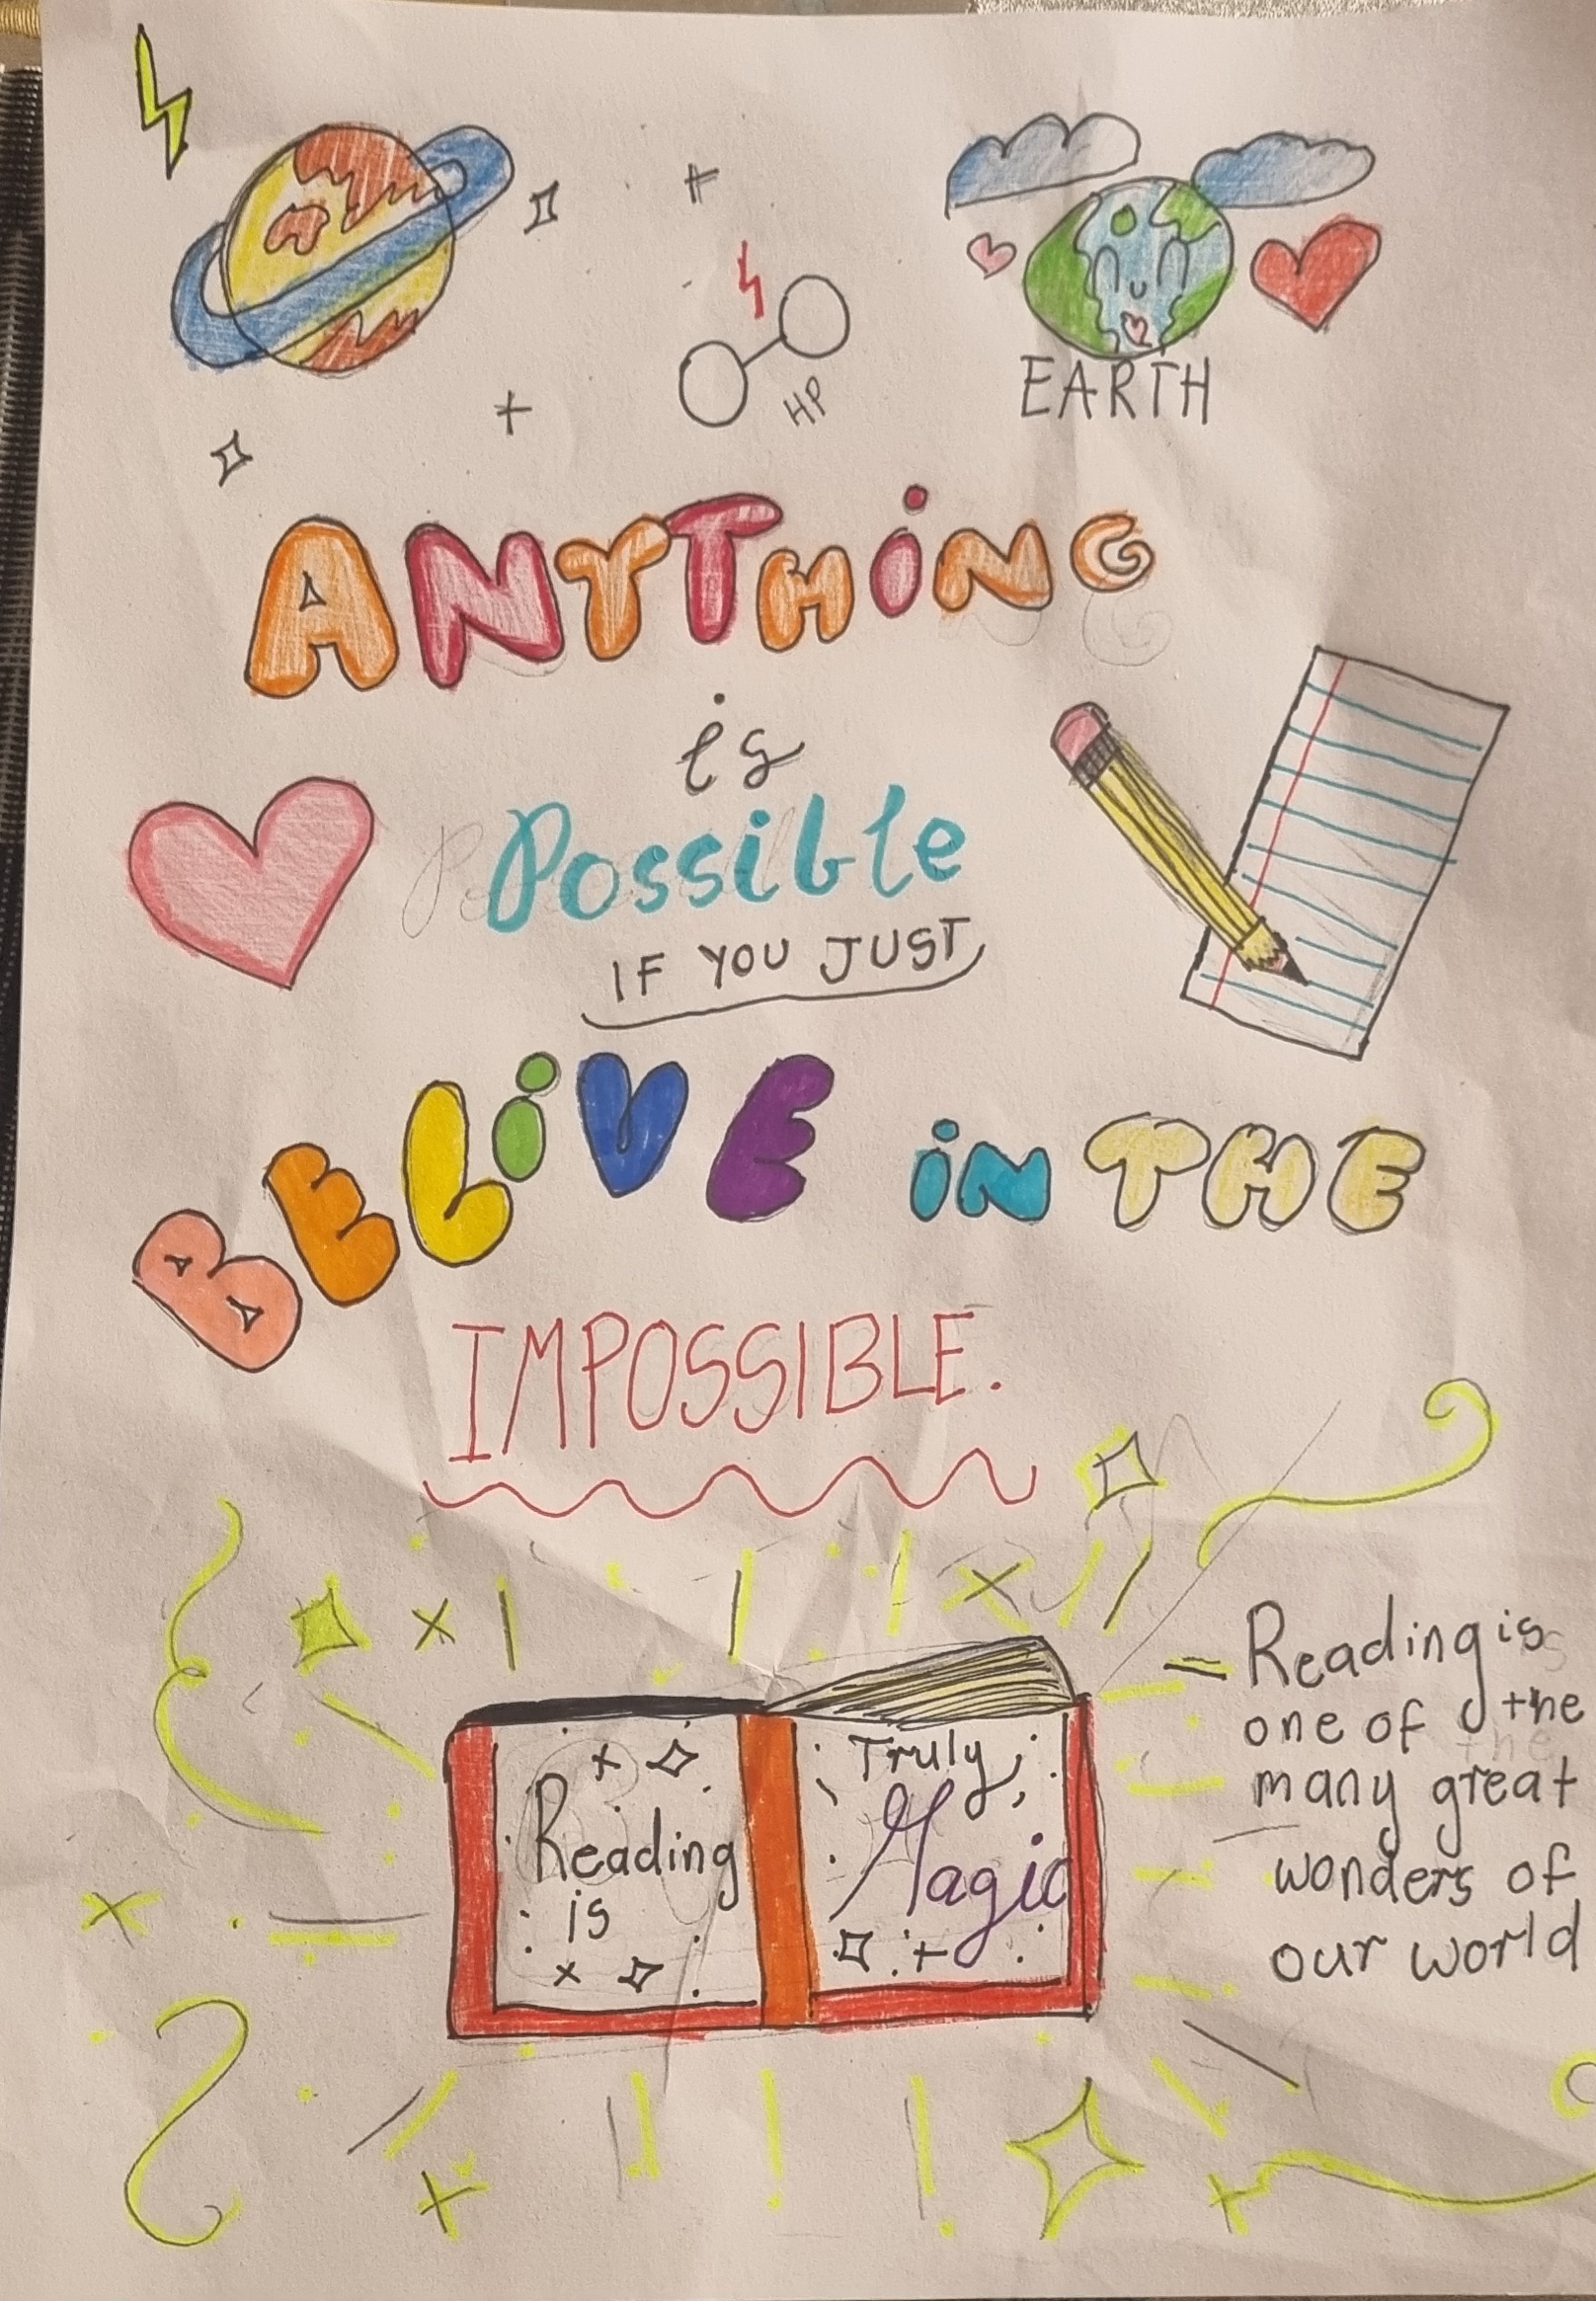 HP
EARTH
ANYTHiNG
is
Possible
IF YOU JUST
BELiVE iN THE
IMPOSSIBLE.
Reading is
one of the
many great
wonders of
our world
Reading
is
Truly
Magic